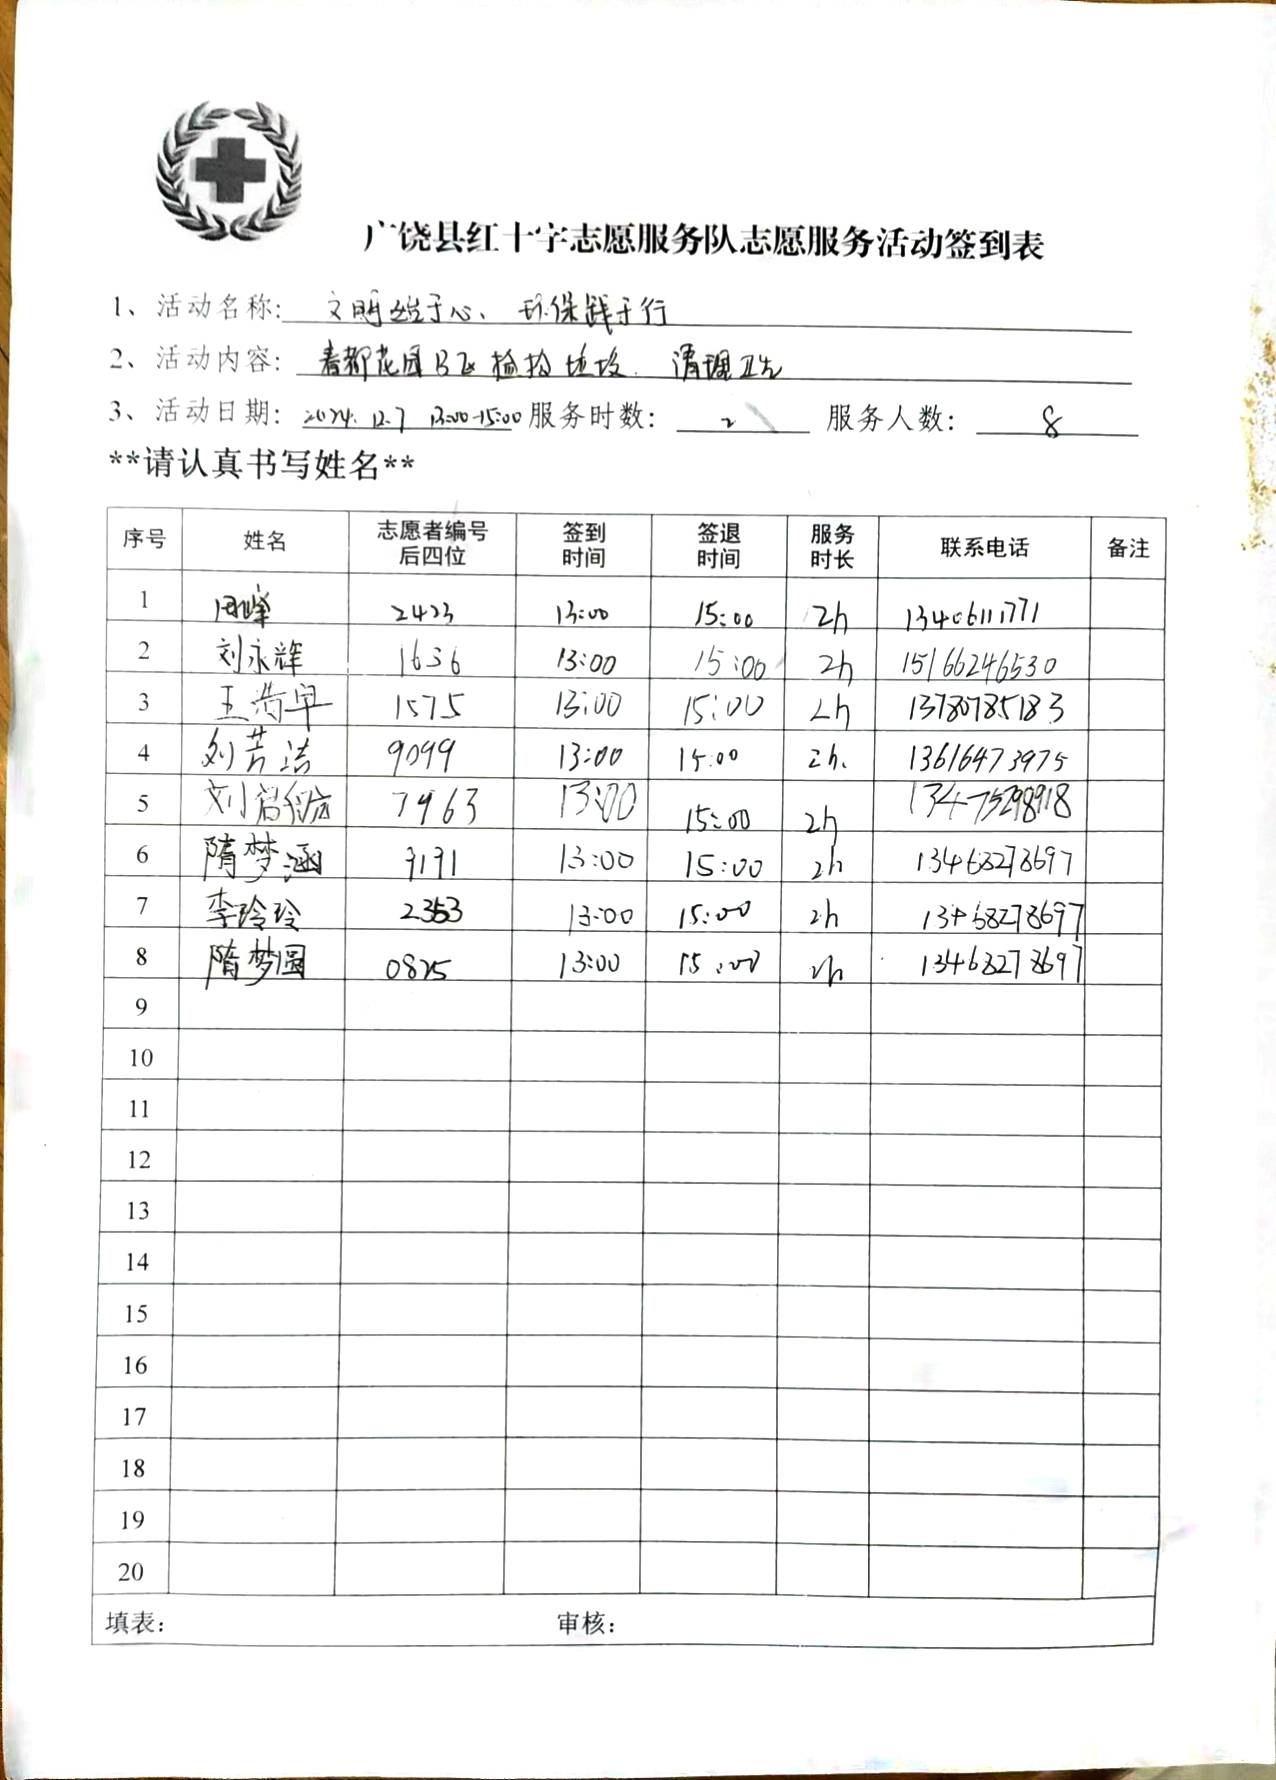 广饶县红十字志愿服务队志愿服务活动签到表
1、活动名称: 文明始于心、环保践于行
2、活动内容: 春都花园B区 捡拾垃圾. 清理卫生
3、活动日期: 2024.12.7 13:00-15:00 服务时数: 2 服务人数: 8
**请认真书写姓名**
序号 姓名 志愿者编号后四位 签到时间 签退时间 服务时长 联系电话 备注
1 田峰 2423 13:00 15:00 2h 13406111771
2 刘永辉 1636 13:00 15:00 2h 15166246530
3 王 1575 13:00 15:00 2h 13780785183
4 刘芳洁 9099 13:00 15:00 2h. 13616473975
5 刘 7963 13:00 15:00 2h 13475298918
6 隋梦涵 3131 13:00 15:00 2h 13468278697
7 李玲玲 2353 13:00 15:00 2h 13468278697
8 隋梦圆 0825 13:00 15:00 2h 13468278697
9
10
11
12
13
14
15
16
17
18
19
20
填表: 审核: